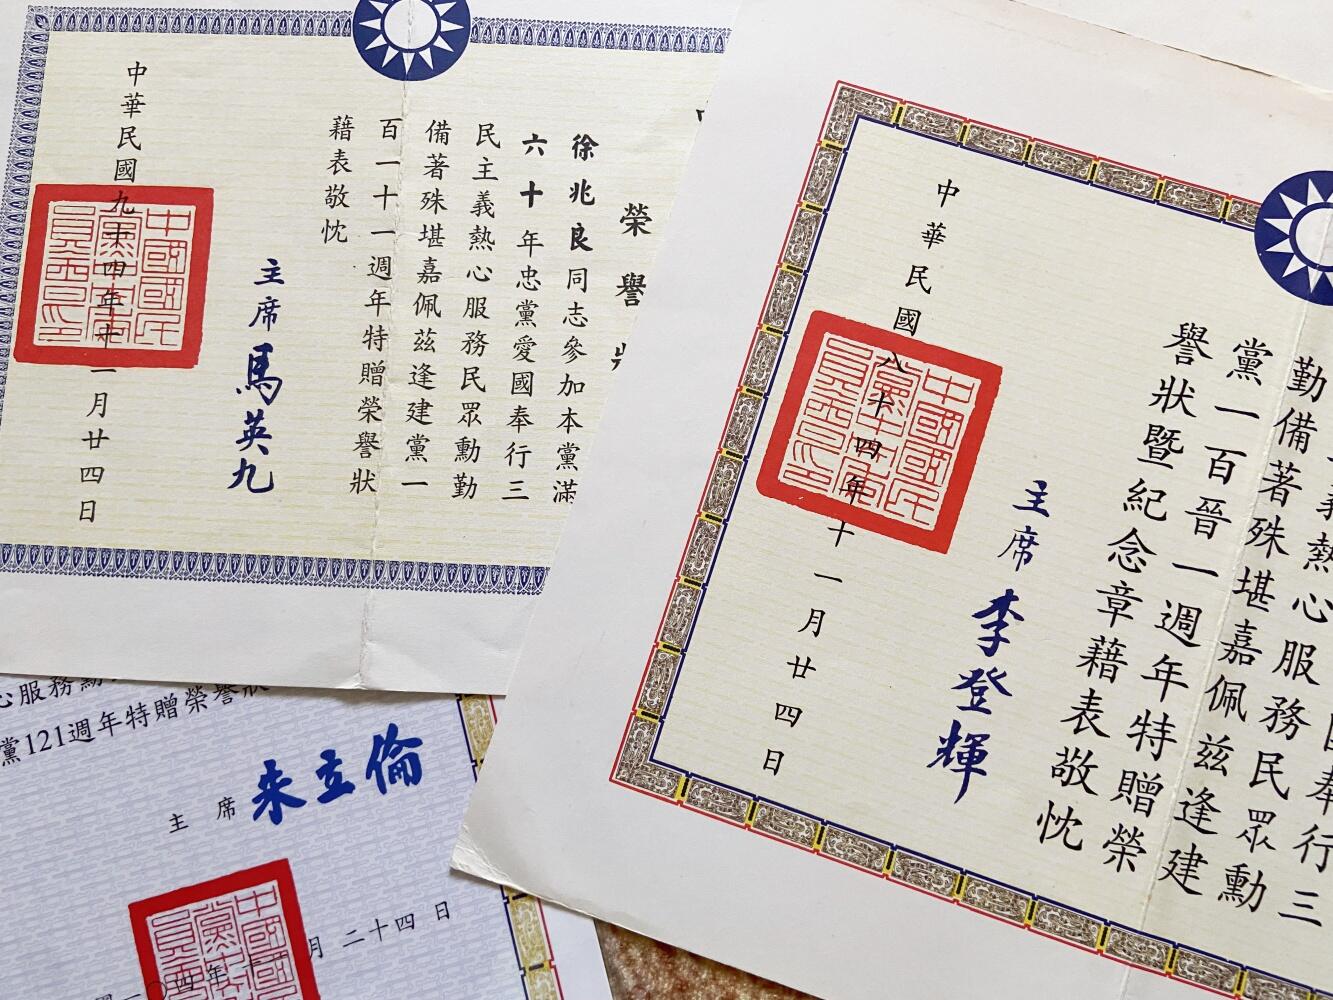 榮譽
徐兆良同志參加本黨滿
六十年忠黨愛國奉行三
民主義熱心服務民眾勳勤
備著殊堪嘉佩茲逢建黨一
百一十一週年特贈榮譽狀
藉表敬忱
主席馬英九
中華民國九十四年十一月廿四日
中國國民
黨中央委
員會之印
奉行三
義熱心服務民眾勳
勤備著殊堪嘉佩茲逢建
黨一百晉一週年特贈榮
譽狀暨紀念章藉表敬忱
主席李登輝
中華民國八十四年十一月廿四日
中國國民
黨中央委
員會之印
心服務勳
黨121週年特贈榮譽狀
主席朱立倫
一〇四年
月二十四日
中國國
黨中
員會